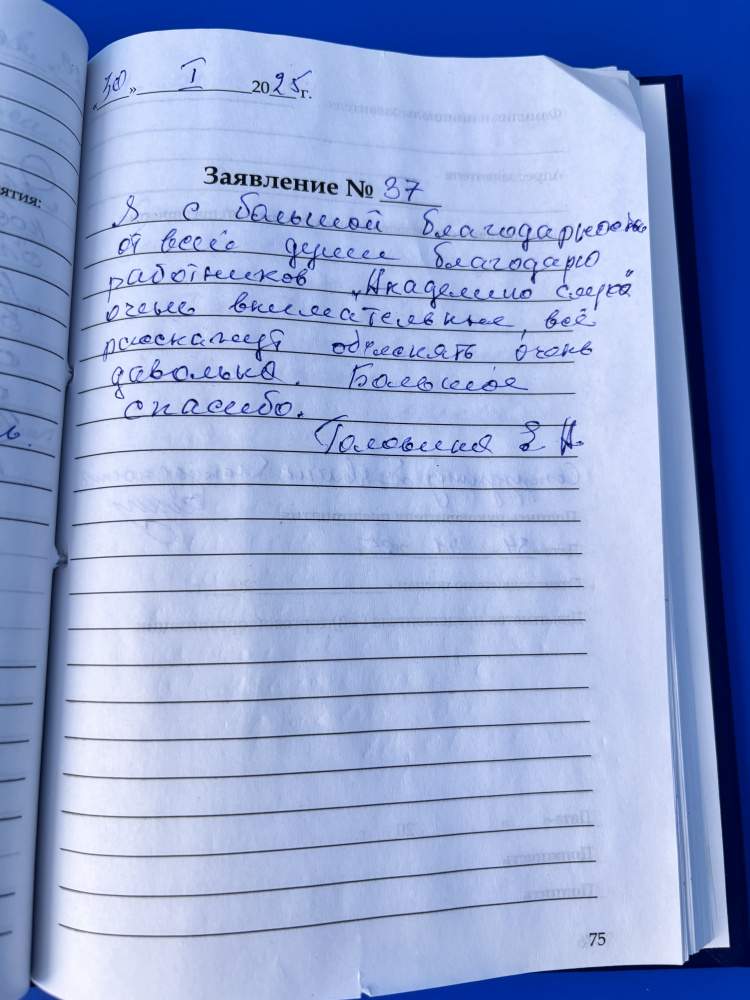 «30» I 2025 г.
ятия:
Заявление № 37
Я с большой благодарностью
от всей души благодарю
работников „Академию слуха"
очень внимательные, всё
раскажут обяснять очень
давольна. Большое
спасибо.
Головина Е Н.
75